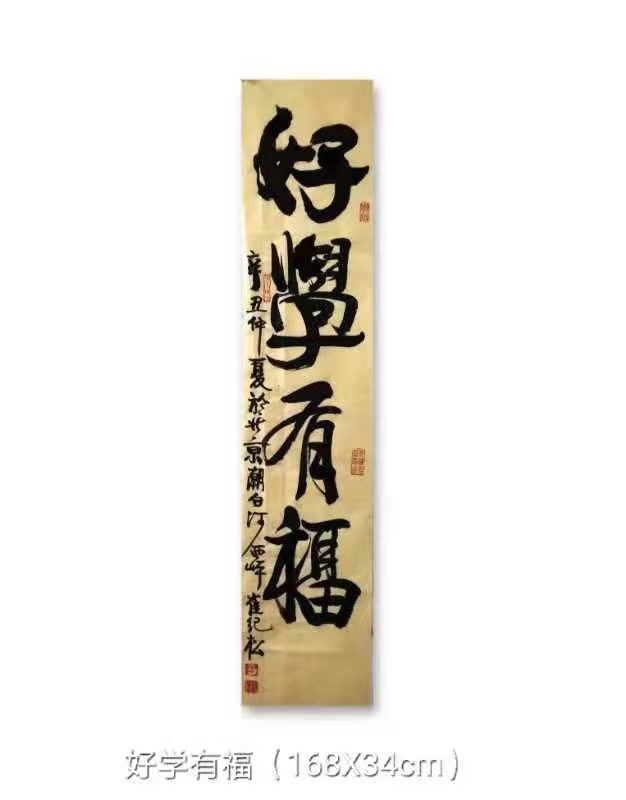 好學有福
辛丑仲夏於北京潮白河西岸崔紀松
好学有福（168X34cm）